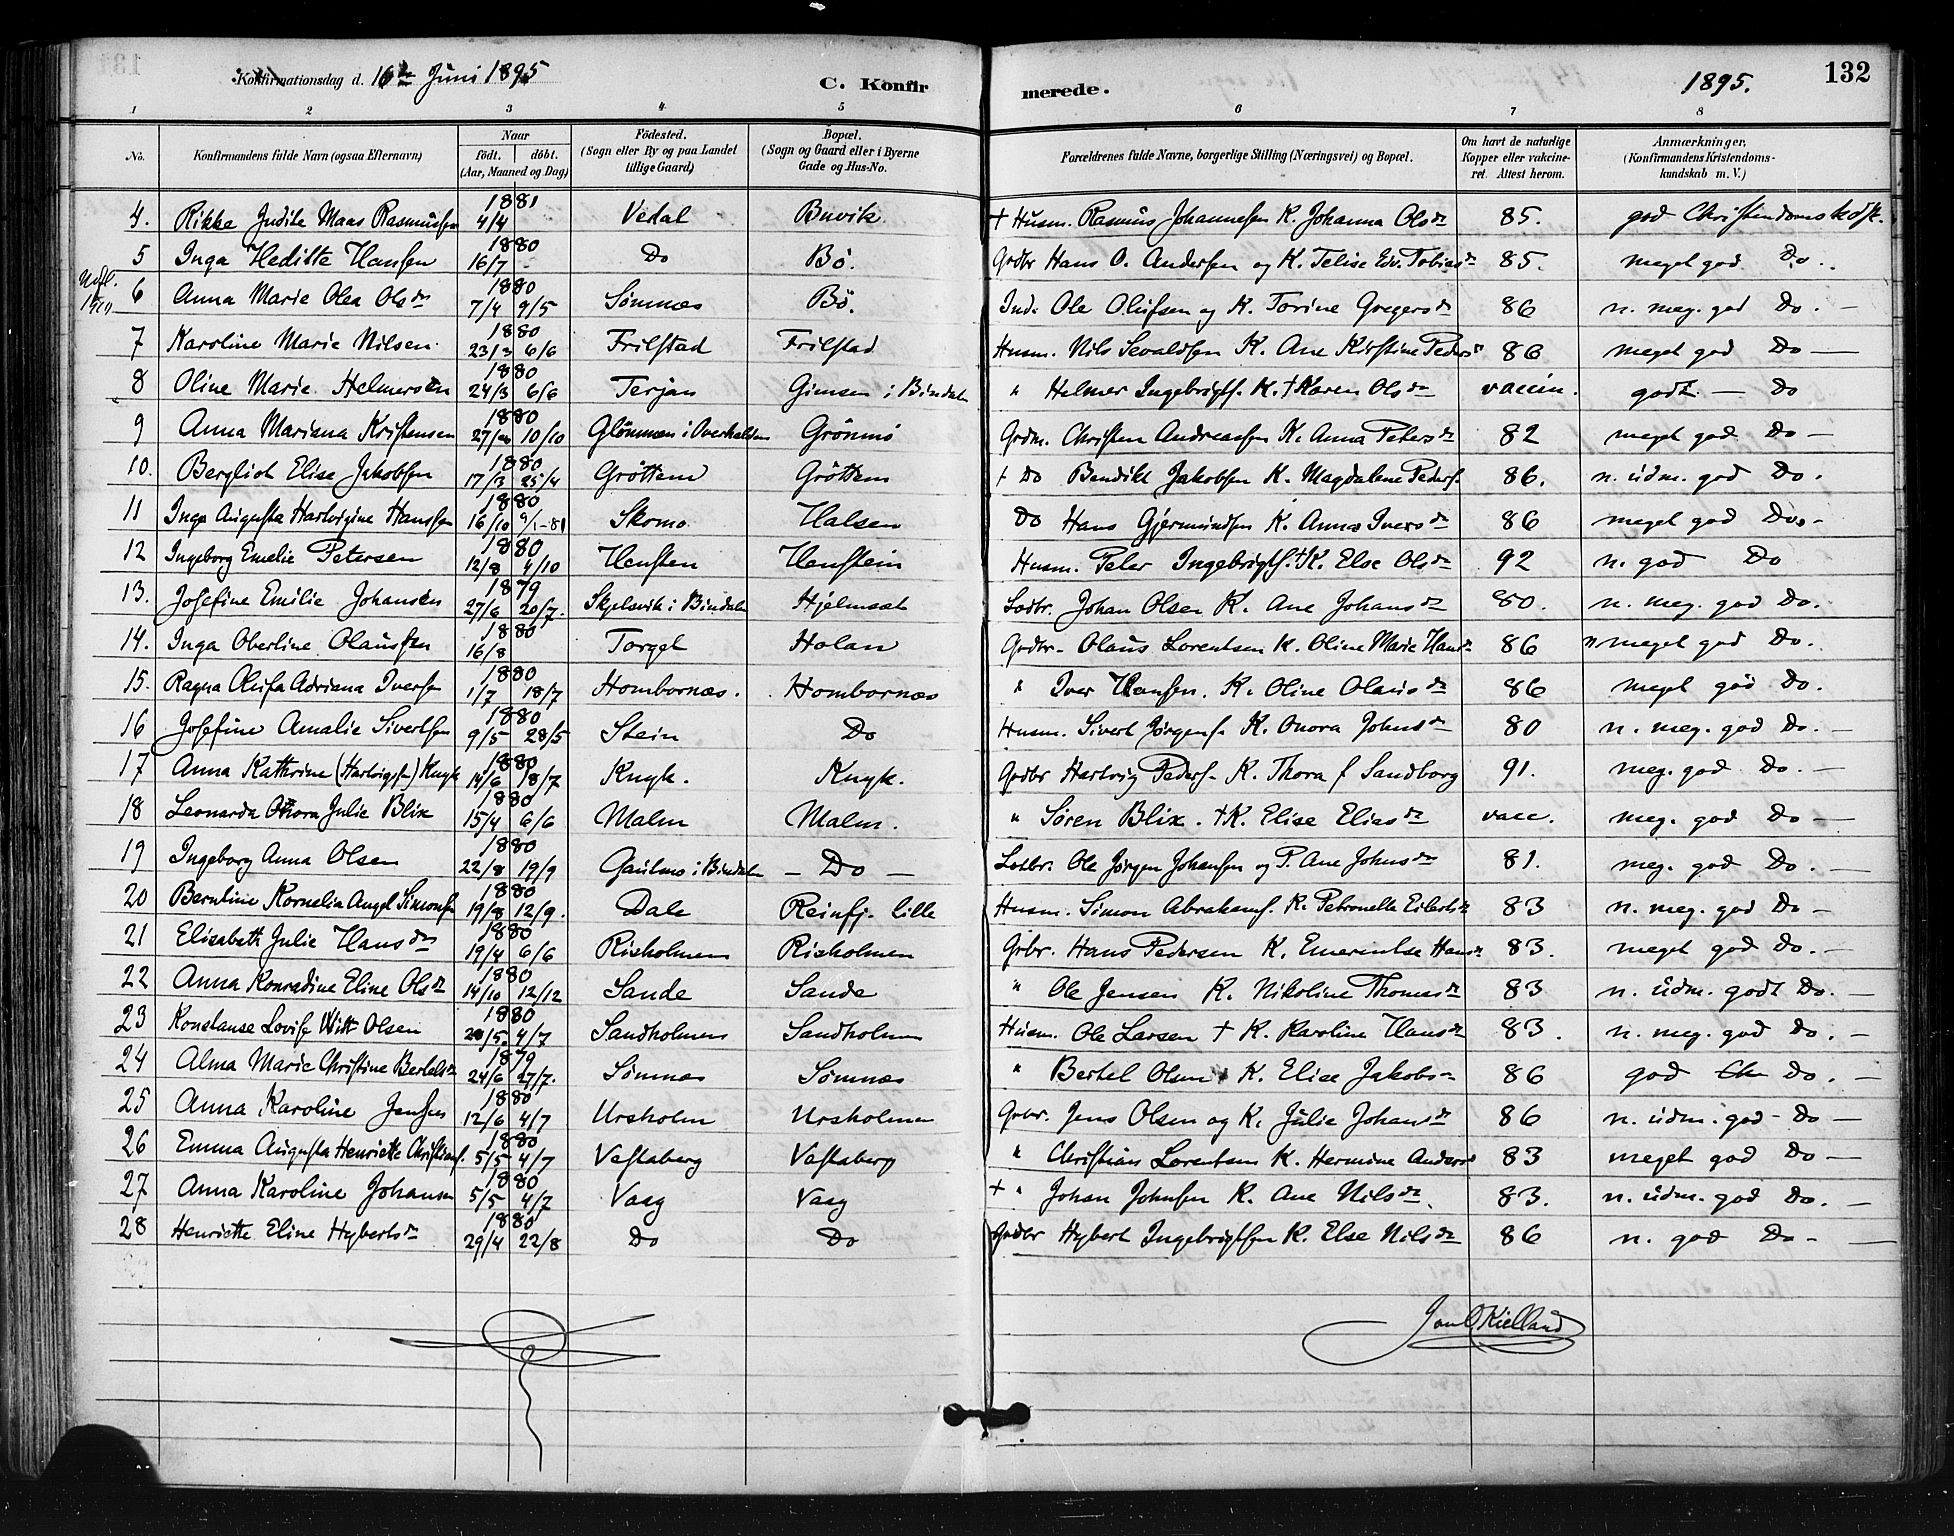 Konfirmationsdag d. 16de Juni 1895 C. Konfirmerede. 1895. 132
1 2 3 4 5 6 7 8
No. Konfirmandens fulde Navn (ogsaa Efternavn) Naar født. døbt. (Aar, Maaned og Dag) Fødested. (Sogn eller By og paa Landet tillige Gaard) Bopæl. (Sogn og Gaard eller i Byerne Gade og Hus-No. Forældrenes fulde Navne, borgerlige Stilling (Næringsvei) og Bopæl. Om havt de naturlige Kopper eller vaccineret. Attest herom. Anmærkninger, (Konfirmandens Kristendomskundskab m. V.)
4. Rikke Judite Maas Rasmussen 1881 4/4 Vedal Buvik + Husm. Rasmus Johannessen K. Johanna Olsdr 85. god Christendomskdsk.
5 Inga Heditte Hansen 1880 16/7 - Do Bø. Grdbr Hans O. Andersen og K. Telise Edv. Tobiasdr 85. meget god Do.
6 Anna Marie Olea Olsdr 1880 7/4 9/5 Sømnæs Bø. Ind. Ole Olufsen og K. Torine Gregersdr 86 n. meg. god Do. -
7 Karoline Marie Nilsen 1880 23/3 6/6 Frilstad Frilstad Husm. Nils Sevaldsen K. Ane Kirstine Pedersdr 86 meget god Do -
8 Oline Marie Helmersen 1880 24/3 6/6 Terjan Gimsen i Bindalen " Helmer Ingebrigts. K. + Karen Olsdr vaccin. godt - Do
9 Anna Mariana Kristensen 1880 10/10 Glømmen i Overhalden Grønmo Grdm. Christen Andreassen K. Anna Petersdr 82 meget god Do -
10. Bergliot Elise Jakobsen 1880 17/3 25/4 Grøttem Grøttem + Do Bendikt Jakobsen K. Magdalene Peders. 86. n. udm. god Do.
11 Inga Augusta Hartvigine Hanssen 1880 16/10 9/1-81 Skomo Halsen Do Hans Gjermundsen K. Anna Iversdr 86 meget god Do. -
12 Ingeborg Emelie Petersen 1880 12/8 4/10 Hensten Henstein Husm. Peter Ingebrigts. + K. Else Olsdr 92 n. god Do
13. Josefine Emilie Johansen 1879 27/6 20/7. Skjelsvik i Bindalen Hjelmset Lodbr. Johan Olsen K. Ane Johansdr 80. n. meg. god Do.
14. Inga Oberline Olaussen 1880 16/8 Torget Holan Grdbr. Olaus Lorentsen K. Oline Marie Hansdr 86 n meget god Do.
15. Ragna Olufa Adriana Ivers. 1880 1/7 18/7 Hombornæs. Hombornæs " Iver Hansen. K. Oline Olausdr 86 meget god Do.
16 Josefine Amalie Sivertsen 1880 9/5 28/5 Stein Do Husm. Sivert Jørgens. K. Onora Johnsdr 80 n. meg. god Do. -
17 Anna Kathrine (Hartvigsen) Knyk 1880 14/6 18/7 Knyk. Knyk. Grdbr Hartvig Peders. K. Thora f Sandborg 91. meg. god Do. -
18 Leonarda Onora Julie Blix 1880 15/4 6/6 Malm Malm. " Søren Blix. + K. Elise Eliasdr vacc. meg. god Do -
19 Ingeborg Anna Olsen 1880 22/8 19/9 Gaulmo i Bindalen - Do - Lodbr. Ole Jørgen Johansen og P. Ane Johnsdr 81. meg. god Do. -
20 Berntine Kornelia Angel Simonsen 1880 19/8 12/9. Dale Reinfj. lille Husm. Simon Abrahams. K. Petronella Eilertsdr 83 n. meg. god Do -
21 Elisabeth Julie Hansdr 1880 19/4 6/6 Risholmen Risholmen Grbr. Hans Pedersen K. Emerentse Hansdr 83. meget god Do. -
22 Anna Konradine Eline Olsdr 1880 14/10 12/12 Sande Sande " Ole Jensen K. Nikoline Thomasdr 83 n. udm. godt Do. -
23 Konstanse Lovise Witt Olsen 1880 20/5. 4/7 Sandholmen Sandholmen Husm. Ole Larsen + K. Karoline Hansdr 83. n. meg. god Do. -
24 Alma Marie Christine Bertelsdr 1879 24/6 27/7. Sømnæs Sømnæs " Bertel Olsen K. Elise Jakobsdr 86 god Do. -
25 Anna Karoline Jensen 1880 12/6 4/7 Ursholm Ursholmen Grbr. Jens Olsen og K. Julie Johansdr 86 n. udm. god - Do -
26 Emma Augusta Henriette Christians. 1880 5/5 4/7 Vestaberg Vastaberg " Christian Lorentsen K. Hermine Andersdr 83 meget god Do -
27 Anna Karoline Johansen 1880 5/5 4/7 Vaag Vaag + " Johan Johnsen K. Ane Nilsdr. 83. n. udm. god Do. -
28 Henriette Eline Hybertsdr 1880 29/4 22/8 Do Do Grdbr Hybert Ingebrigtsen K. Else Nilsdr 86 n. god Do - -
Kielland